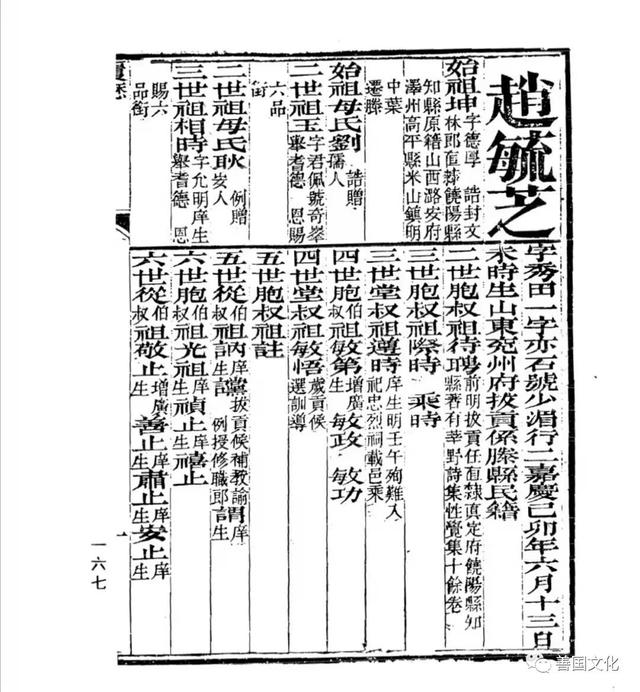 趙毓芝
字秀田一字亦石號少湄行二嘉慶己卯年六月十三日
未時生山東兗州府拔貢係滕縣民籍
始祖坤字德厚 誥封文林郎直隸饒陽縣
知縣原籍山西潞安府
澤州高平縣米山鎮明
中葉
遷滕
始祖母氏劉誥贈孺人
二世祖玉字君佩號奇峯舉耆德 恩賜
六品
銜
二世祖母氏耿例贈安人
三世祖相時字允明庠生舉耆德 恩
賜六
品銜
二世胞叔祖待聘前明拔貢任直隸真定府饒陽縣知縣著有莘野詩集性覺集十餘卷
三世胞叔祖際時 乘時
三世堂叔祖遵時庠生明壬午殉難入祀忠烈祠載邑乘
四世胞伯叔祖敏第增廣生敏政 敏功
四世堂叔祖敏悟歲貢候選訓導
五世胞叔祖註
五世從伯叔祖訥庠生黨拔貢候補教諭例授修職郎謂庠生
六世胞伯叔祖光祖庠生禎止庠生禧止
六世從伯叔祖敬止增廣生善止庠生肅止庠生安止庠生
一六七
善国文化